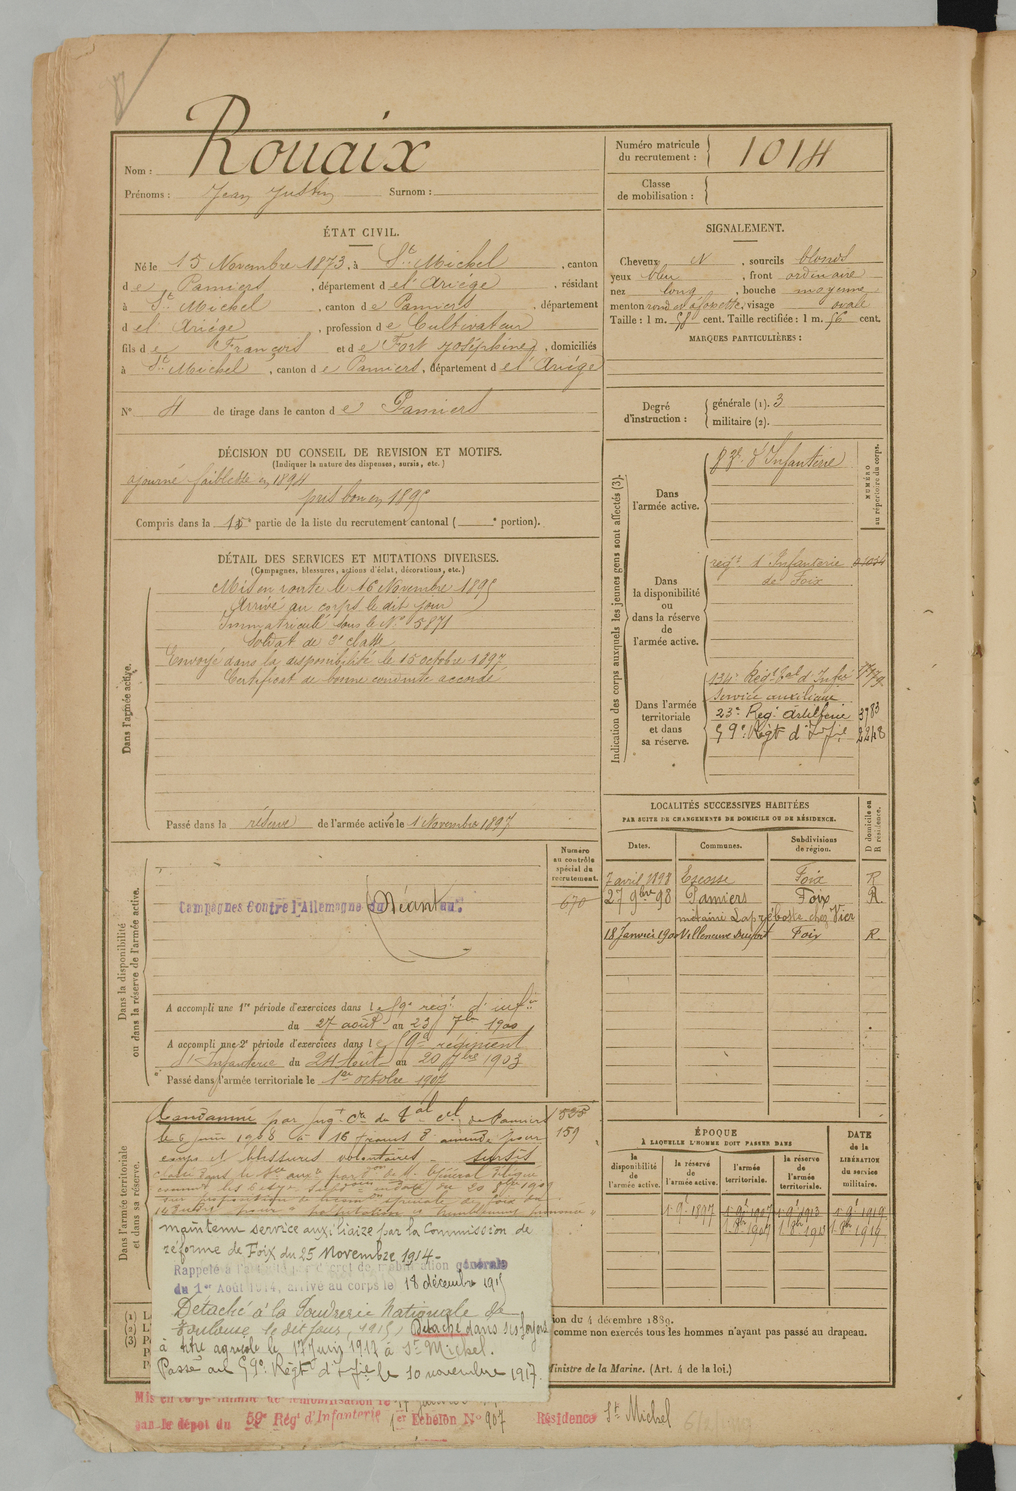 Nom : Rouaix
Prénoms : Jean Justin Surnom :
Numéro matricule
du recrutement : 1014
Classe
de mobilisation :
ÉTAT CIVIL.
Né le 15 Novembre 1873, à St Michel, canton
de Pamiers, département de l'Ariège, résidant
à St Michel, canton de Pamiers, département
de l'Ariège, profession de Cultivateur
fils de François et de Fort Joséphine, domiciliés
à St Michel, canton de Pamiers, département de l'Ariège
N° 4 de tirage dans le canton de Pamiers
SIGNALEMENT.
Cheveux N, sourcils blonds
yeux bleu, front ordinaire
nez long, bouche moyenne
menton rond et à fossette, visage ovale
Taille : 1 m. 58 cent. Taille rectifiée : 1 m. 56 cent.
MARQUES PARTICULIÈRES :
Degré
d'instruction :
générale (1). 3
militaire (2).
DÉCISION DU CONSEIL DE REVISION ET MOTIFS.
(Indiquer la nature des dispenses, sursis, etc.)
ajourné faiblesse en 1894
pris bon en 1895
Compris dans la 1e partie de la liste du recrutement cantonal ( e portion).
DÉTAIL DES SERVICES ET MUTATIONS DIVERSES.
(Campagnes, blessures, actions d'éclat, décorations, etc.)
Dans l'armée active.
Mis en route le 16 Novembre 1895
Arrivé au corps le dit jour
Immatriculé sous le N° 5871
Soldat de 2e classe
Envoyé dans la disponibilité le 15 octobre 1897
Certificat de bonne conduite accordé
Passé dans la réserve de l'armée active le 1 Novembre 1897
Indication des corps auxquels les jeunes gens sont affectés (3).
NUMÉRO
au répertoire du corps.
Dans
l'armée active.
d'Infanterie
Dans
la disponibilité
ou
dans la réserve
de
l'armée active.
regt d'Infanterie
de Foix
Dans l'armée
territoriale
et dans
sa réserve.
134e Régt tal d'Infie
Service auxiliaire
23e Reg. Artillerie 3783
59e Régt d'Infie 2248
LOCALITÉS SUCCESSIVES HABITÉES
PAR SUITE DE CHANGEMENTS DE DOMICILE OU DE RÉSIDENCE.
D domicile ou
R résidence.
Dates. Communes. Subdivisions
de région.
7 avril 1898 Escosse Foix R
27 9bre 98 Pamiers Foix R.
métairie chez Vier
18 Janvier 1900 Villeneuve Foix R.
Dans la disponibilité
ou dans la réserve de l'armée active.
Numéro
au contrôle
spécial du
recrutement.
670
Campagnes Contre l'Allemagne du Néant au
A accompli une 1re période d'exercices dans le 59e rég. d'infie
du 27 août au 23 7bre 1900
A accompli une 2e période d'exercices dans le 59e régiment
d'Infanterie du 24 Août au 20 7bre 1903
Passé dans l'armée territoriale le 1er octobre 1907
Dans l'armée territoriale
et dans sa réserve.
Condamné par jugt de Pamiers
le 6 juin 1908 à 16 francs d'amende pour
coups et blessures volontaires - sursis
159
maintenu service auxiliaire par la Commission de
réforme de Foix du 25 Novembre 1914 -
Rappelé à l'activité par décret de mobilisation générale
du 1er Août 1914, arrivé au corps le 18 décembre 1915
Détaché à la Poudrerie Nationale de
Toulouse le dit jour, 1915, Détaché dans ses foyers
à titre agricole le 17 Juin 1917 à St Michel.
Passé au 59e Régt d'Infie le 10 novembre 1917.
ÉPOQUE
À LAQUELLE L'HOMME DOIT PASSER DANS
DATE
de la
LIBÉRATION
du service
militaire.
la
disponibilité
de
l'armée active.
la réserve
de
l'armée active.
l'armée
territoriale.
la réserve
de
l'armée
territoriale.
ion du 4 décembre 1889.
comme non exercés tous les hommes n'ayant pas passé au drapeau.
Ministre de la Marine. (Art. 4 de la loi.)
Mis en congé illimité de démobilisation le
par le dépôt du 59e Rég. d'Infanterie 1er Echelon N° 907 Résidence St Michel